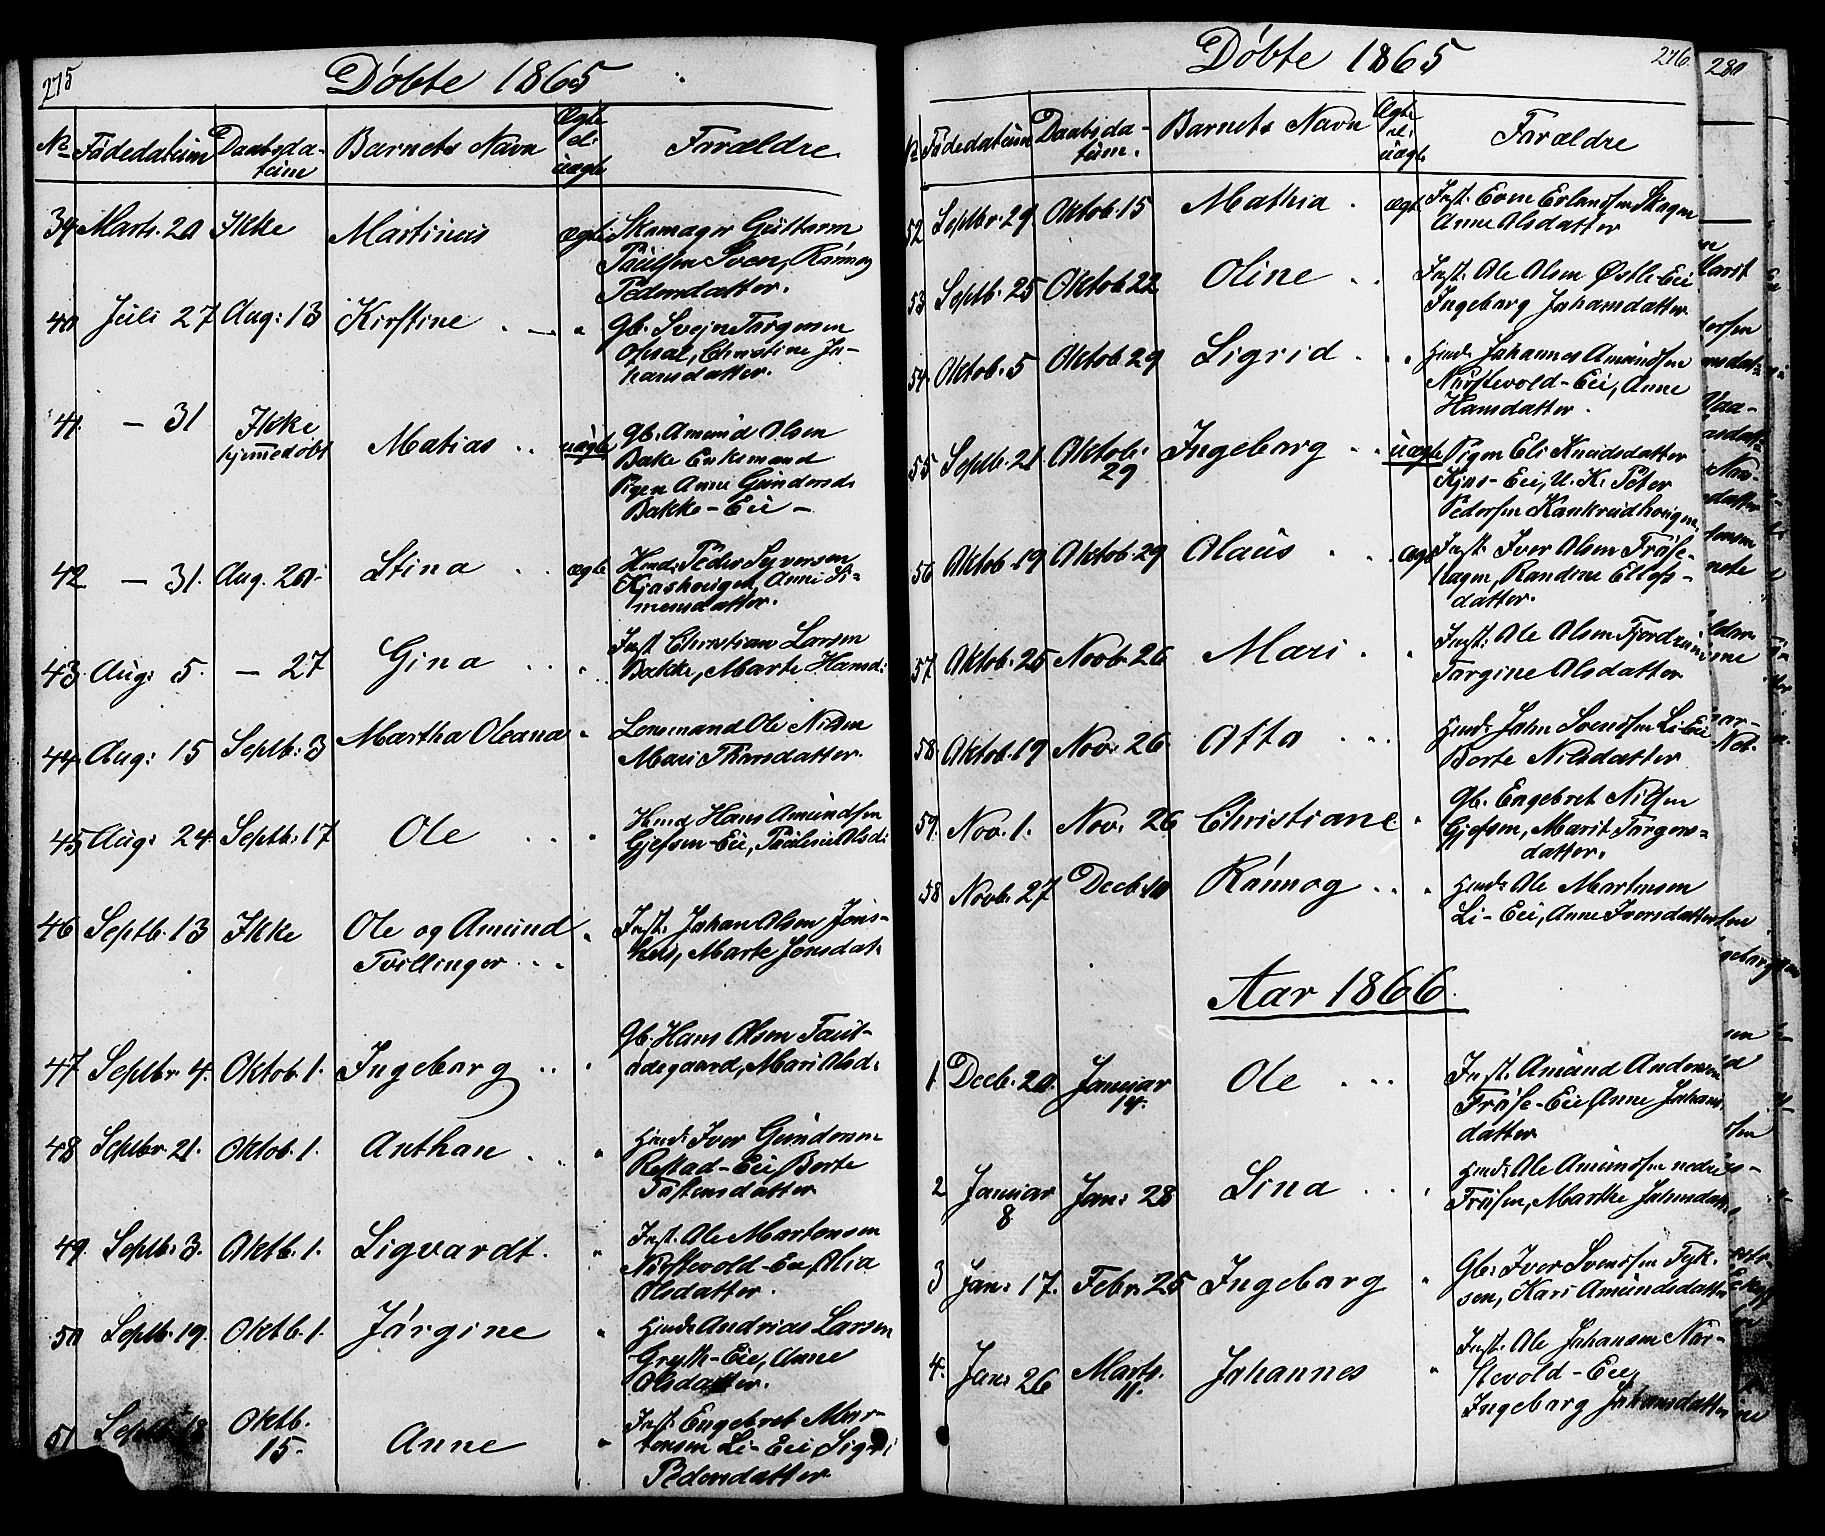 275
Döbte 1865
No Födedatum Daabsda-tum Barnets Navn Ægte el. uægte Forældre
39 Marts 20 Ikke Martinus ægte Skomager Guttorm
Paulsen Sven, Rönnog
Pedersdatter.
40 Juli 27 Aug: 13 Kirstine . — " Gb. Svejn Torgersen
Opsal, Christine Jo-
hansdatter.
41. — 31 Ikke hjemmedöbt Matias .. uægte Gb. Amund Olsen
Bake Enkemand
Pigen Anne Gundersd:
Bakke-Eie —
42 — 31. Aug. 20. Stina . . ægte Huusm: Peder Syversen
Kjoshougen, Anne Si-
mensdatter.
43. Aug: 5. — 27 Gina . . . Inst. Christian Larsen
Bakke, Marte Hansd:
44. Aug: 15 Septb: 3 Martha Oleana " Lensmand Ole Nilsen
Mari Thorsdatter.
45 Aug: 24. Septb: 17 Ole . . " Huusm: Hans Amundsen
Gjefsen-Eie, Pauline Olsd:
46 Septb. 13 Ikke Ole og Amund
Tvillinger . . . Inst. Johan Olsen Jons-
hus, Marte Jonsdat:
47 Septbr 4. Oktob. 1. Ingeborg .. . Gb. Hans Olsen Taut-
ödegaard, Mari Olsd:
48 Septbr. 21. Oktob. 1. Anthon . . " Huusm: Iver Gundersen
Rekstad-Eie, Borte
Tostensdatter
49. Septb: 3. Oktb. 1. Sigvardt. " Inst. Ole Mortensen
Norstevold-Eie, Olia
Olsdatter.
50 Septb. 19. Oktb. 1. Jörgine " Huusm: Andrias Larsen
Gryth-Eie, Anne
Olsdatter.
51 Septb: 18 Oktb. 15. Anne " Inst. Engebret Mor-
tensen Li-Eie, Sigri
Pedersdatter
Döbte 1865
276.
No Födedatum Daabsda-tum. Barnets Navn Ægte el. uægte Forældre
52 Septbr. 29 Oktob. 15 Mathia . ægt. Inst. Even Erlandsen Skogen
Anne Olsdatter
53 Septb. 25 Oktob. 22 Oline . . Inst. Ole Olsen Østli-Eie
Ingeborg Johansdatter
54. Oktob. 5 Oktob. 29 Sigrid . . . Huusm: Johannes Amundsen
Norstevold-Eie, Anne
Hansdatter.
55 Septb. 21 Oktob: 29 Ingeborg . . uægte Pigen Eli Knudsdatter
Kjos-Eie, U. K. Peter
Pedersen Kankrudhougen
56 Oktob. 19 Oktob. 29 Olaus . . ægt. Inst. Iver Olsen Fröse-
hagen, Randine Ellefs-
datter.
57 Oktob. 25 Novb. 26 Mari . . Inst. Ole Olsen Fjordruen
Torgine Olsdatter
58. Oktob. 19 Nov: 26. Otto . . . Huusm: John Svendsen Li-Eie
Borte Nilsdatter
59. Nov. 1. Nov: 26 Christiane . Gb. Engebret Nilsen
Gjefsen, Marit Torgers-
datter.
58 Novb. 27 Decb. 10 Rönnog . . . Huusm: Ole Mortensen
Li-Eie, Anne Iversdatter
Aar 1866.
1. Decb. 20. Januar 14. Ole . . . Inst. Amund Andersen
Fröse-Eie, Anne Johans
datter
2 Januar 8 Jan: 28 Lina . . . Huusm: Ole Amundsen nedre
Frösen, Marthe Johnsdatt:
3 Jan: 17. Febr. 25 Ingeborg . Gb: Iver Svendsen Fyk-
sen, Kari Amundsdatter
4. Jan: 26 Marts. 11. Johannes " Inst. Ole Johansen Nor-
stevold-Eie,
Ingeborg Johansdatter
280